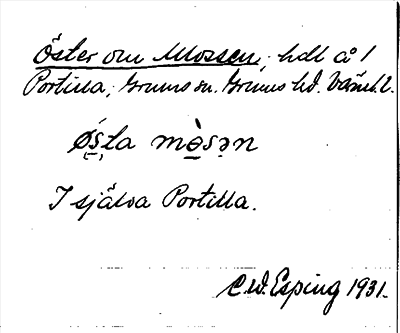 Öster om Mossen, hdl å 1
Portilla, Grums sn. Grums hd. Värml. l.
ø̀s̱ta mòsən
I själva Portilla.
C.W. Esping 1931.